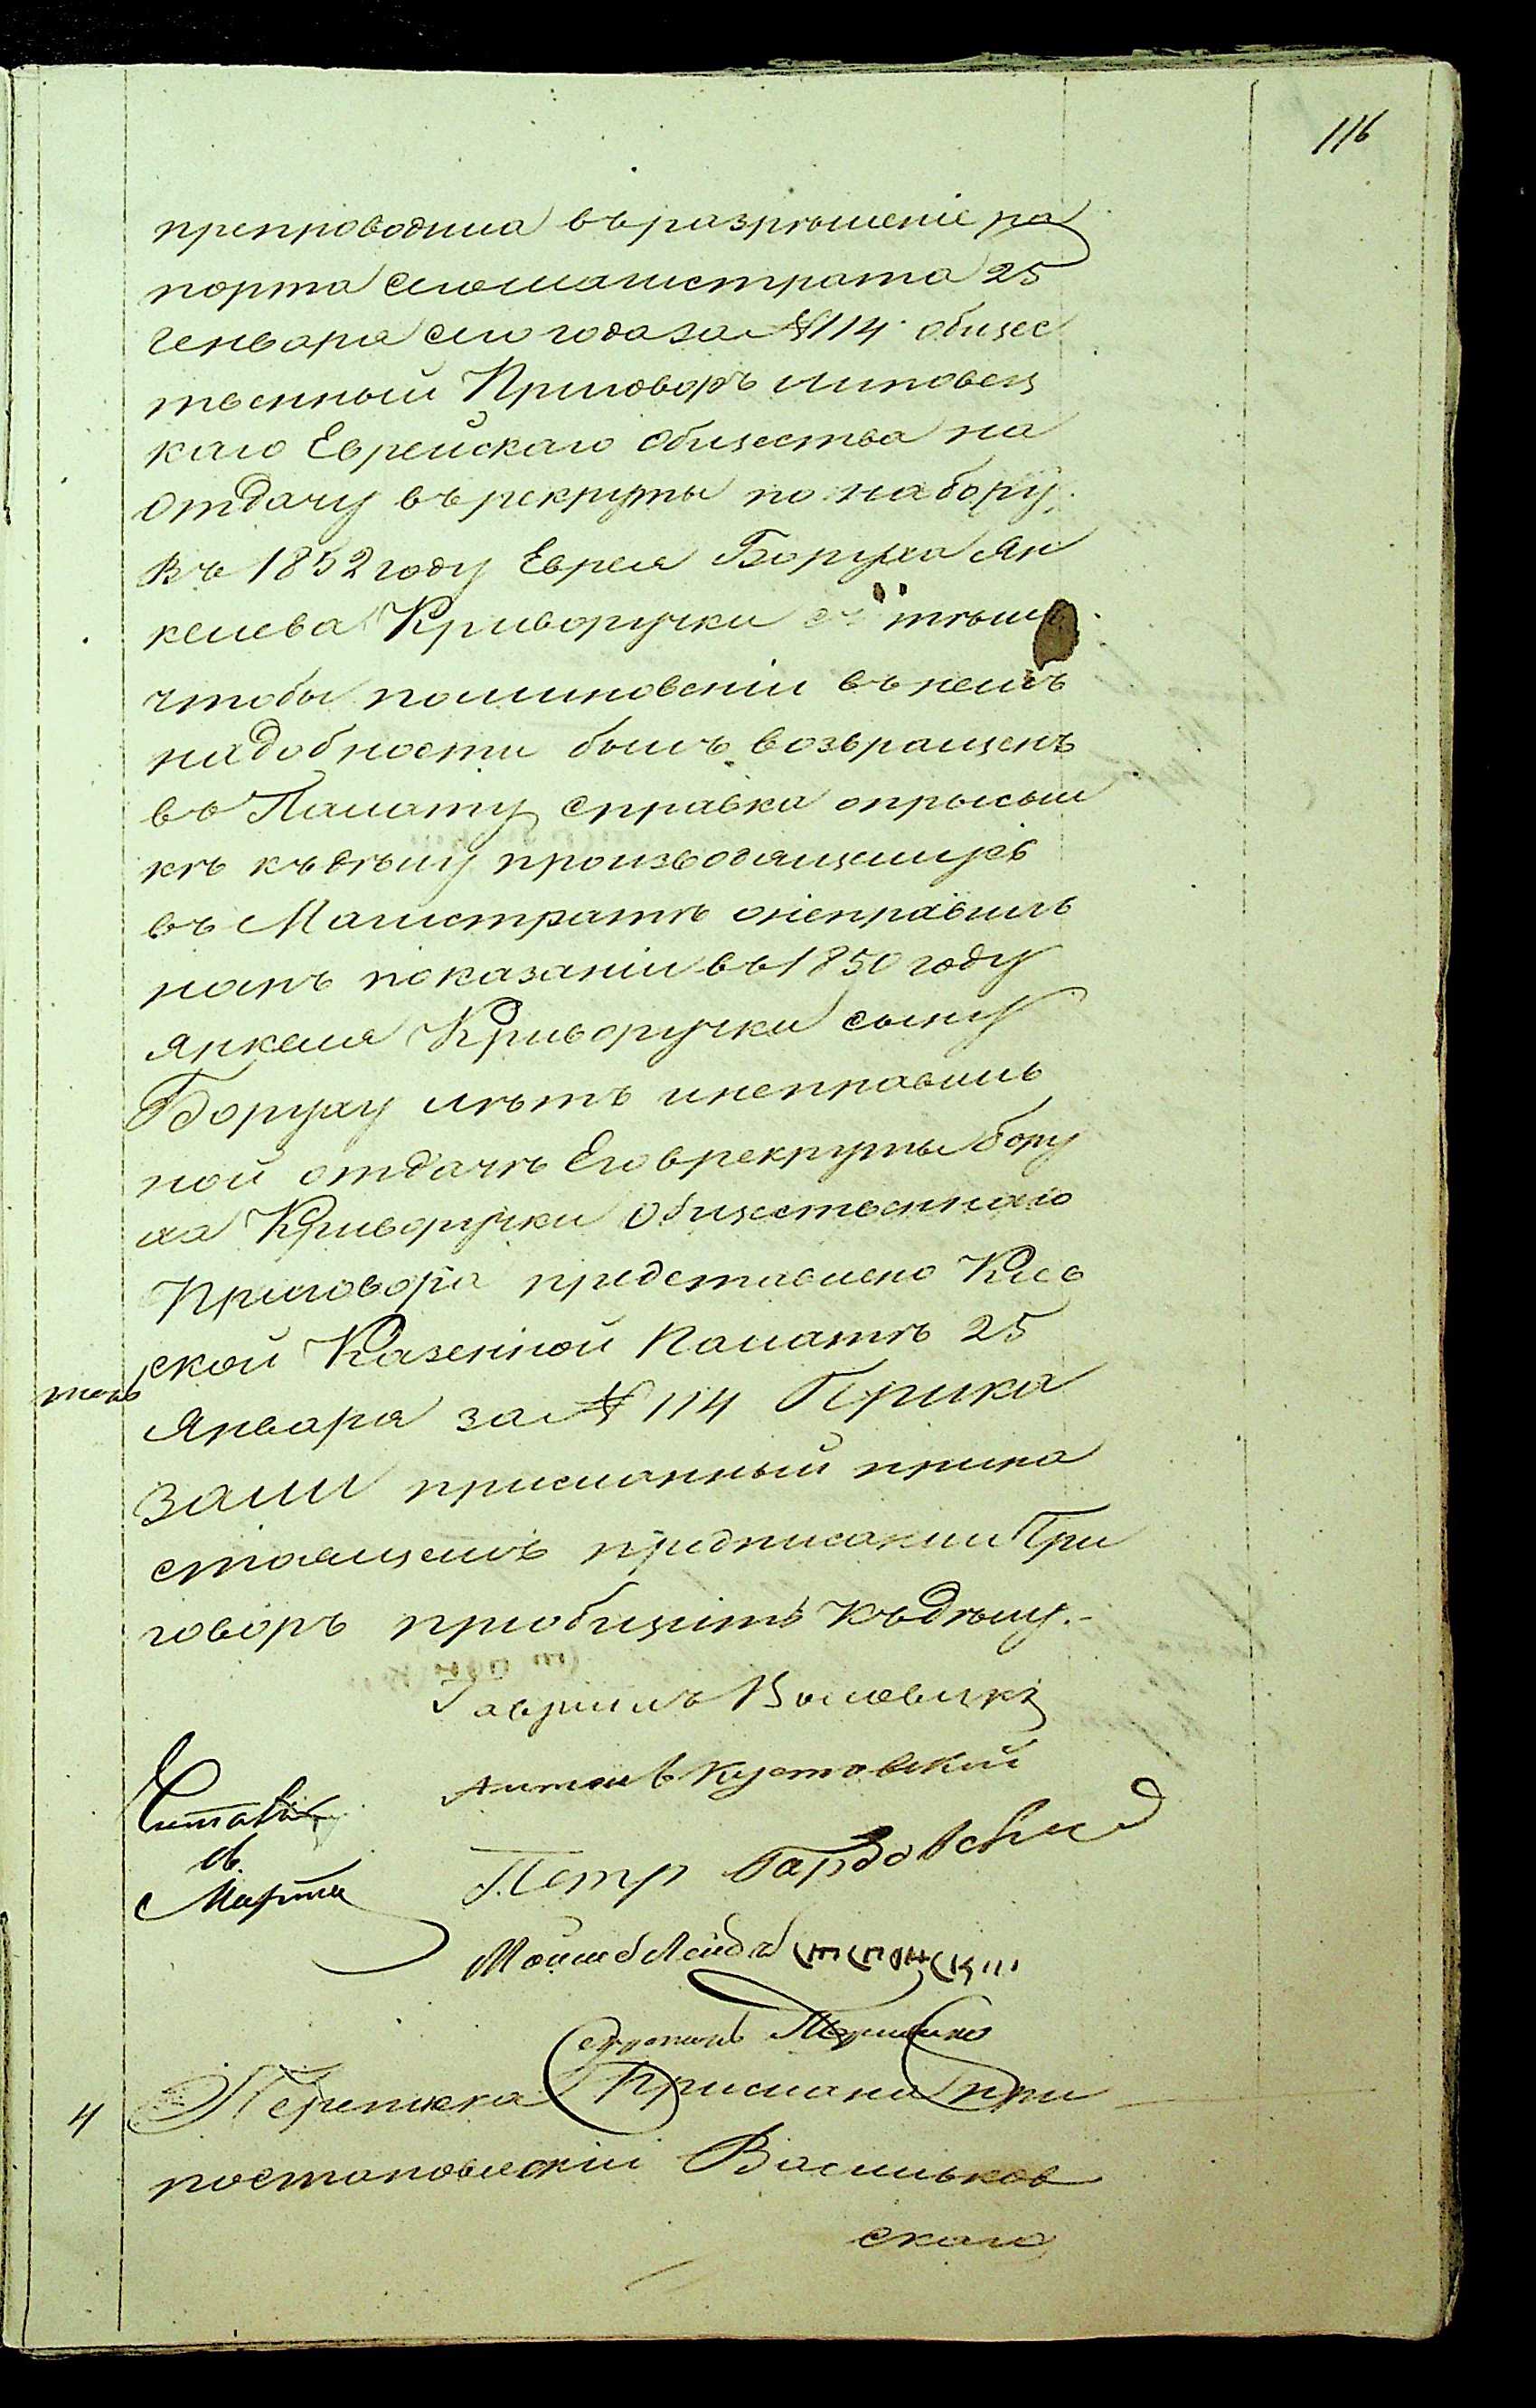 116
препроводила въ разрѣшеніе ра
порта сего магистрата 25
Генваря сего года за № 114 общес
твенный Приговоръ Липовец
каго Еврейскаго Общества на
отдачу въ рекруты по набору
въ 1852 году Еврея Боруха Ян
келева Криворучки съ тѣмъ
чтобы по миновеніи въ немъ
надобности былъ возвращенъ
въ Палату справка о присыл
кѣ къ дѣлу производящимся
въ Магистратѣ о неправиль
номъ показаніи въ 1850 году
Янкеля Криворучки сыну
Боруху лѣтъ и неправиль
ной отдачѣ Его в рекруты Бору
ха Криворучки Общественнаго
Приговора представлено Кіев
ской Казенной Палатѣ 25
Января за № 114 Прика
зали присланный при на
стоящемъ предписании При
говоръ приобщить къ дѣлу.-
Гаврiилъ
Антон Кустовскій
Читалъ
Петр
Марта
Мойше
4 Переписка Прислана при
постановленіи Васильков
скаго